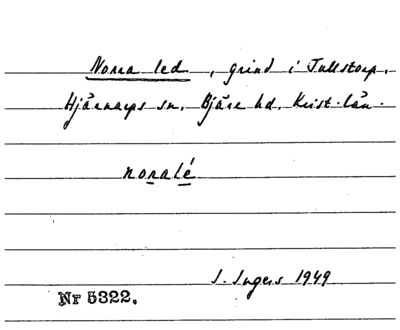 Norra led, grind i Tullstorp,
Hjärnarps sn, Bjäre hd, Krist. län.
noralé
I. Ingers 1949
Nr 5322.